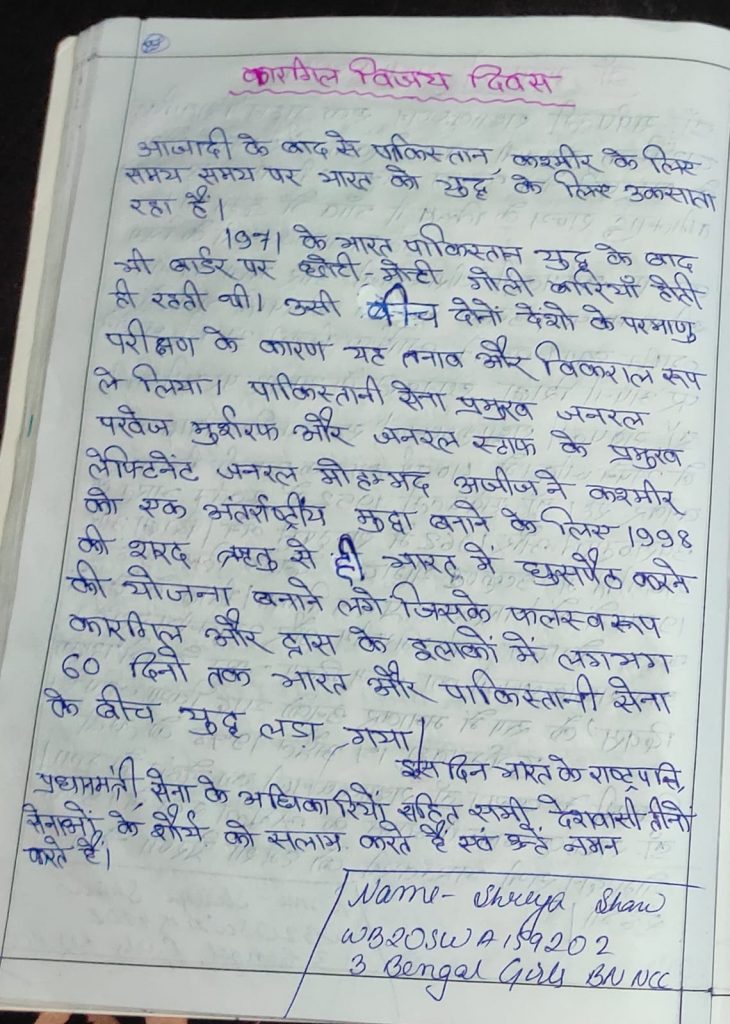 कारगिल विजय दिवस
आजादी के बाद से पाकिस्तान, कश्मीर के लिए
समय समय पर भारत को युद्ध के लिए उकसाता
रहा है।
1971 के भारत पाकिस्तान युद्ध के बाद
भी बार्डर पर छोटी-मोटी गोली बारियाँ होती
ही रहती थी। उसी बीच दोनों देशो के परमाणु
परीक्षण के कारण यह तनाव और विकराल रूप
ले लिया। पाकिस्तानी सेना प्रमुख जनरल
परवेज मुर्शरफ और जनरल स्टाफ के प्रमुख
लेफ्टिनेंट जनरल मोहम्मद अजीज ने कश्मीर
को एक अंतर्राष्ट्रीय मुद्दा बनाने के लिए 1998
की शरद ऋतु से ही भारत में घुसपैठ करने
की योजना बनाने लगे जिसके फलस्वरूप
कारगिल और द्रास के इलाकों में लगभग
60 दिनो तक भारत और पाकिस्तानी सेना
के बीच युद्ध लडा गया।
इस दिन भारत के राष्ट्रपति,
प्रधानमंत्री सेना के अधिकारियों सहित सभी देशवासी तीनो
सेनाओं के शौर्य को सलाम करते है एवं नमन
करते हैं।
Name- Shreya Shaw
WB20SWA159202
3 Bengal Girls BN NCC